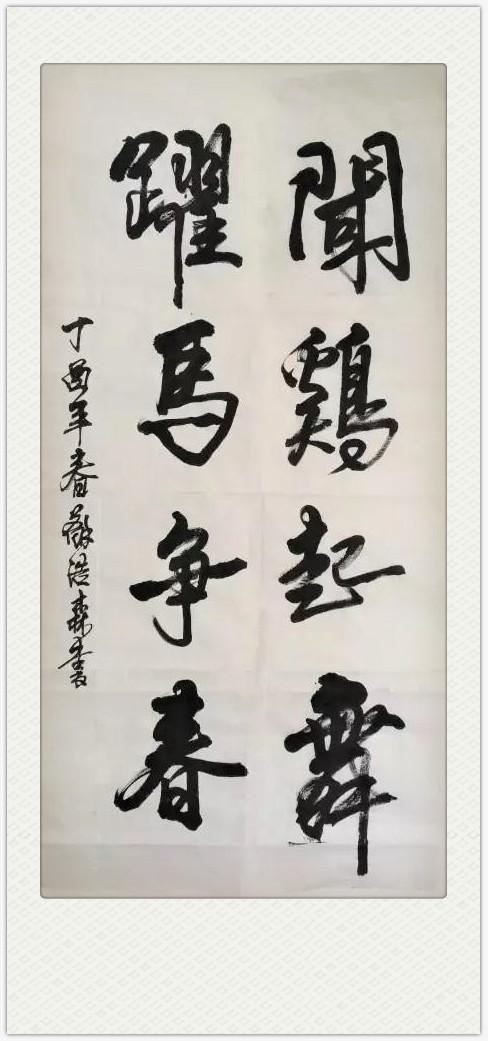 聞鷄起舞
躍馬争春
丁酉年春敬浩森書